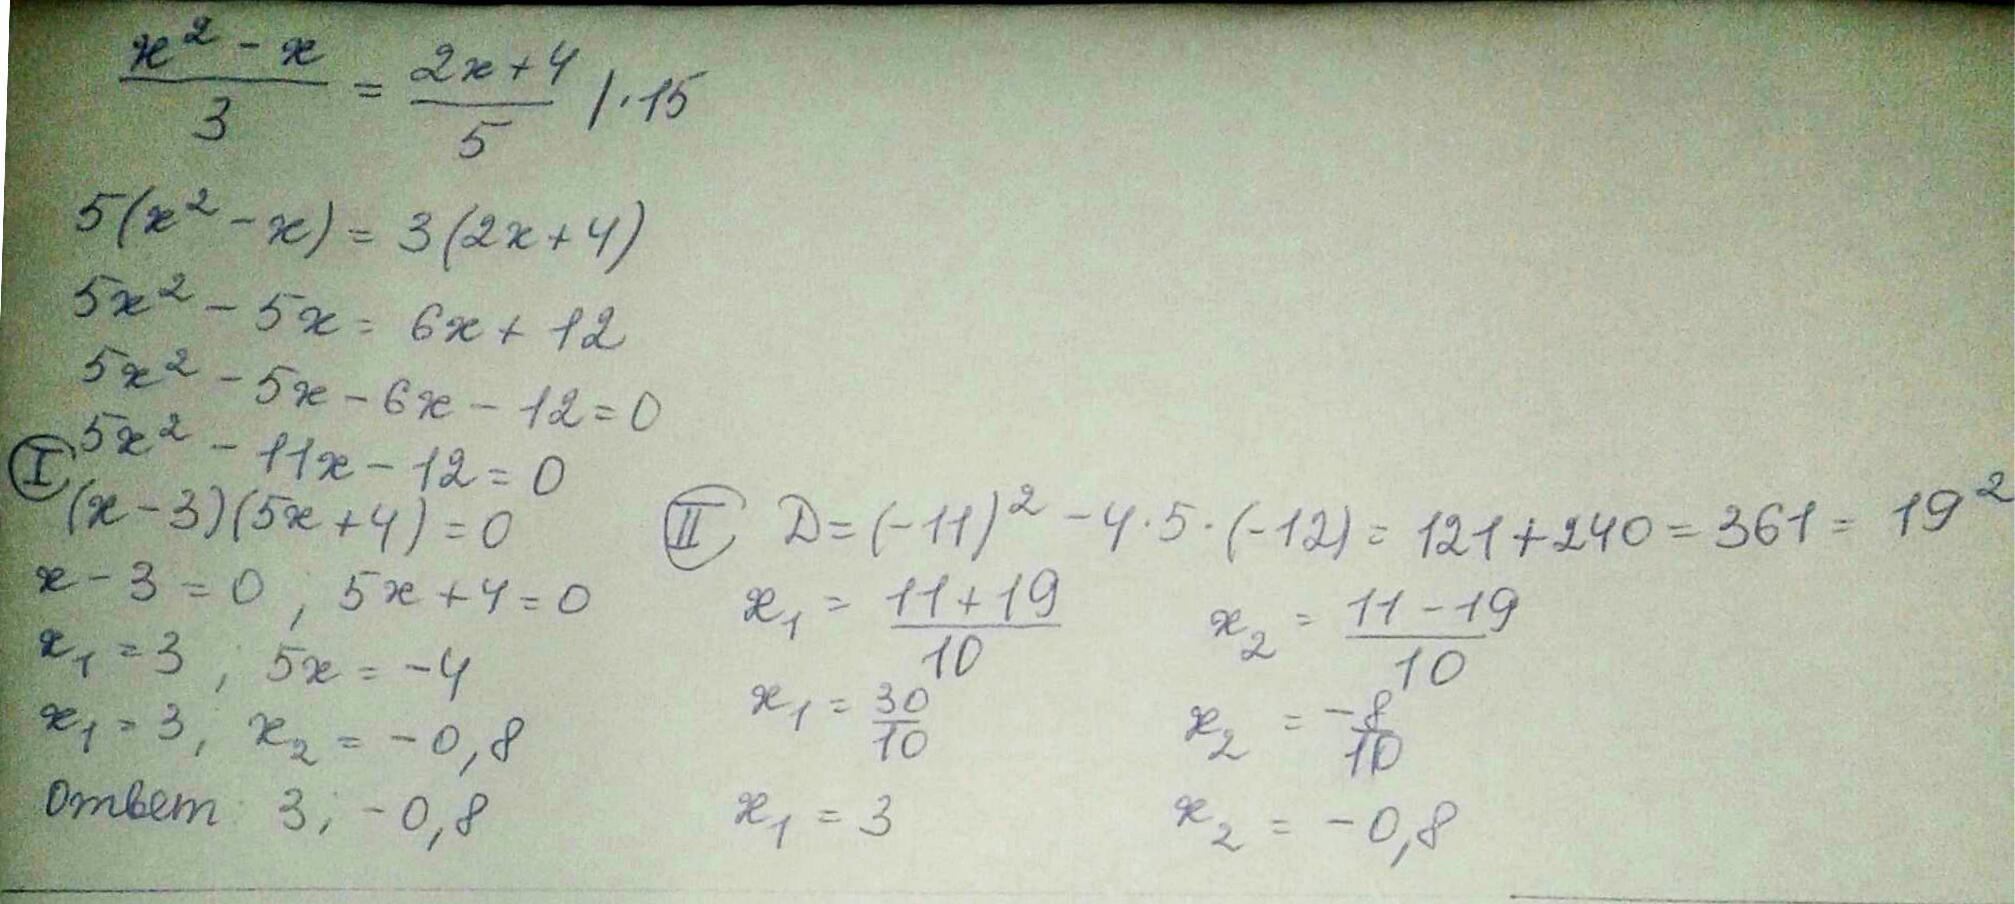 (x² - x)/3 = (2x + 4)/5 /·15
5(x² - x) = 3(2x + 4)
5x² - 5x = 6x + 12
5x² - 5x - 6x - 12 = 0
5x² - 11x - 12 = 0
Ⓘ (x - 3)(5x + 4) = 0
x - 3 = 0 ; 5x + 4 = 0
x₁ = 3 ; 5x = -4
x₁ = 3 ; x₂ = -0,8
Ответ: 3; -0,8
II D = (-11)² - 4·5·(-12) = 121 + 240 = 361 = 19²
x₁ = (11 + 19)/10 x₂ = (11 - 19)/10
x₁ = 30/10 x₂ = -8/10
x₁ = 3 x₂ = -0,8